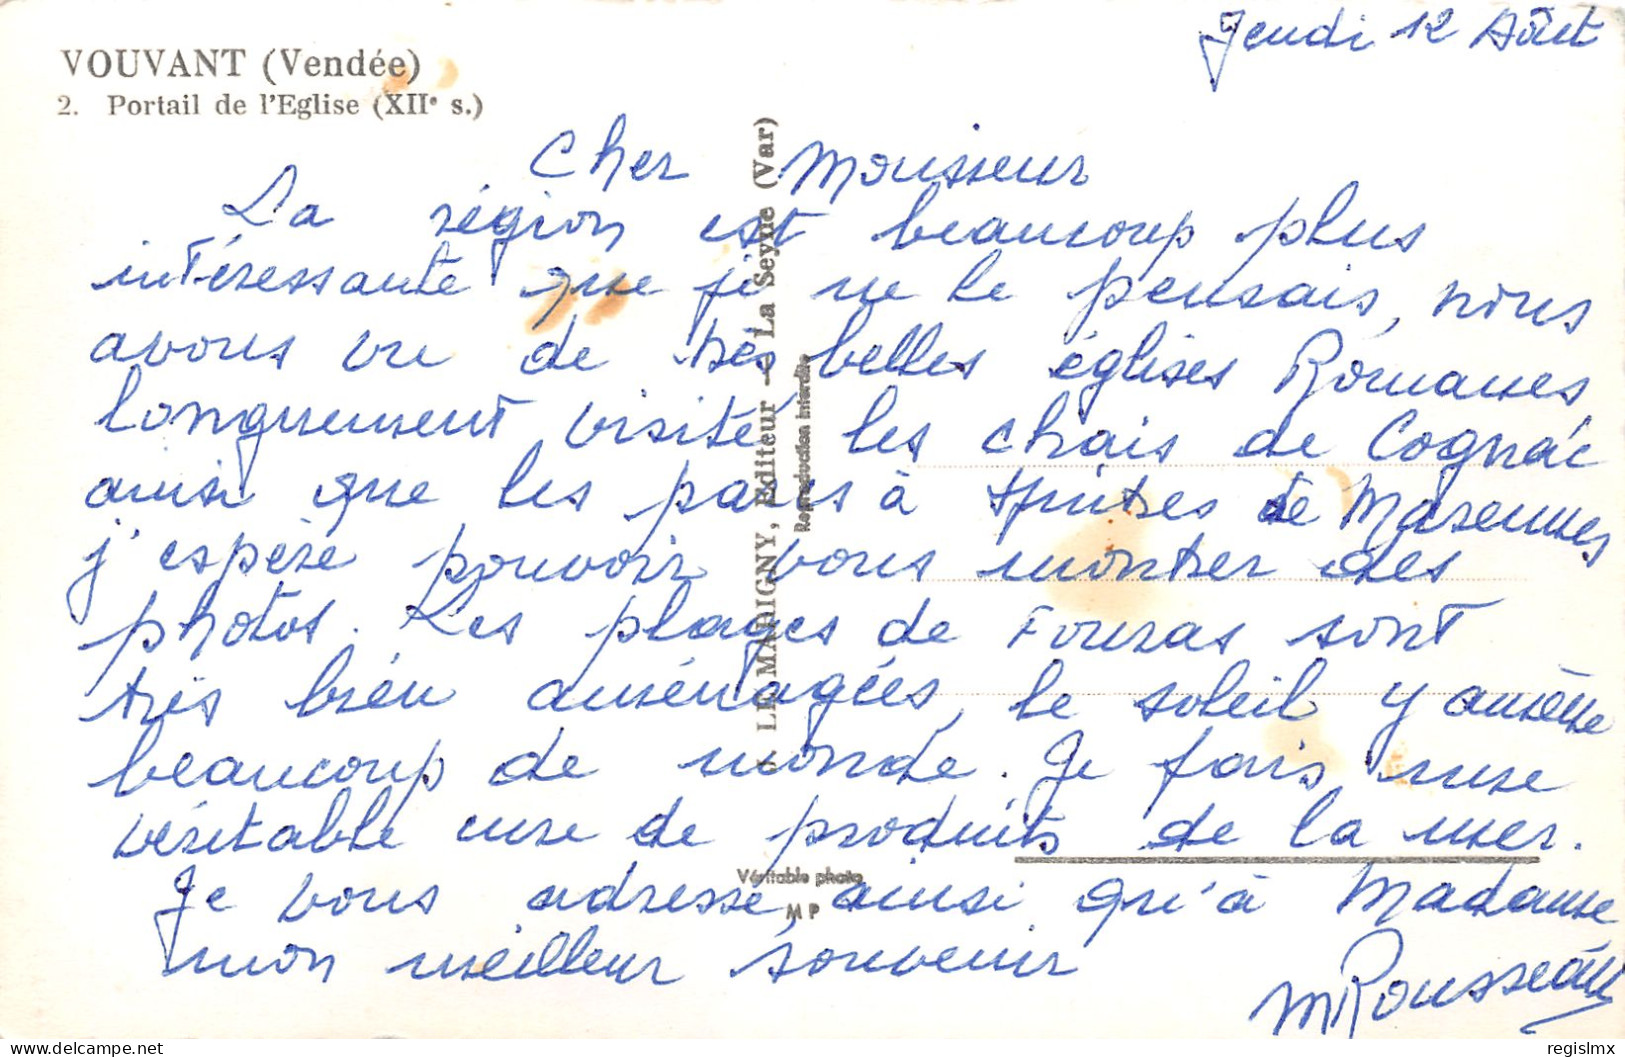 Jeudi 12 Août
VOUVANT (Vendée)
2. Portail de l'Eglise (XIIe s.)
Cher Monsieur
La région est beaucoup plus
intéressante que je ne le pensais, nous
avons vu de très belles églises Romanes
longuement visité les chais de Cognac
ainsi que les parcs à Huîtres de Marennes
j'espère pouvoir vous montrer des
photos. Les plages de Fouras sont
très bien aménagées, le soleil y amène
beaucoup de monde. Je fais une
véritable cure de produits de la mer.
Je vous adresse ainsi qu'à Madame
mon meilleur souvenir
MRousseau
LE MADIGNY, Editeur - La Seyne (Var)
Reproduction interdite
Véritable photo
MP
regislmx
delcampe.net